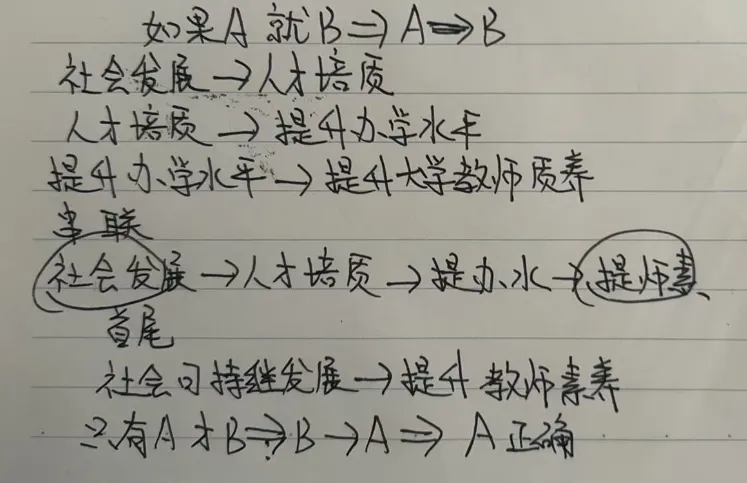 如果A 就B⇒A⇒B
社会发展→人才培质
人才培质→提升办学水平
提升办学水平→提升大学教师质养
串联
社会发展→人才培质→提办水→提师素
首尾
社会可持继发展→提升教师素养
只有A才B⇒B→A⇒A正确